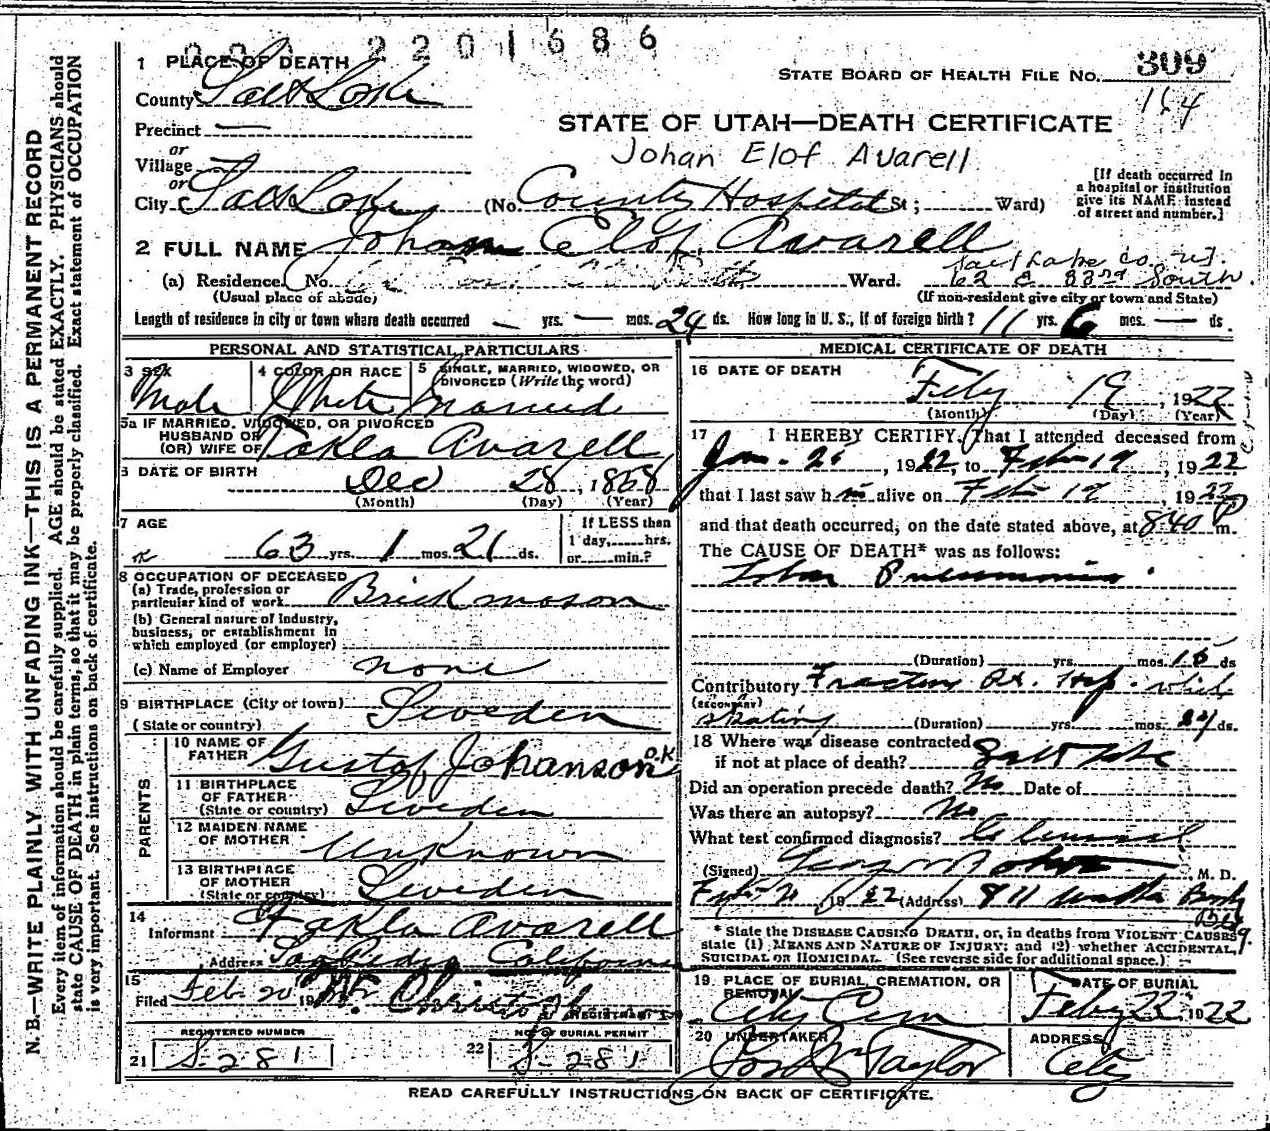 2201686
1 PLACE OF DEATH
STATE BOARD OF HEALTH FILE No. 309
County Salt Lake
164
Precinct —
STATE OF UTAH—DEATH CERTIFICATE
or
Johan Elof Avarell
Village
or
City Salt Lake (No. County Hospital St; Ward)
[If death occurred in a hospital or institution give its NAME instead of street and number.]
2 FULL NAME Johan Elof Avarell
Salt Lake Co.
(a) Residence. No. Ward. 62 E 33rd South
(Usual place of abode) (If non-resident give city or town and State)
Length of residence in city or town where death occurred — yrs. — mos. 24 ds. How long in U. S., if of foreign birth? 11 yrs. 6 mos. — ds.
PERSONAL AND STATISTICAL PARTICULARS
3 SEX Male
4 COLOR OR RACE White
5 SINGLE, MARRIED, WIDOWED, OR DIVORCED (Write the word) Married
5a IF MARRIED, WIDOWED, OR DIVORCED
HUSBAND OF
(OR) WIFE OF Takla Avarell
6 DATE OF BIRTH Dec 28, 1858
(Month) (Day) (Year)
7 AGE
63 yrs. 1 mos. 21 ds.
If LESS than
1 day, hrs.
or min.?
8 OCCUPATION OF DECEASED
(a) Trade, profession or
particular kind of work Brick mason
(b) General nature of industry,
business, or establishment in
which employed (or employer)
(c) Name of Employer none
9 BIRTHPLACE (City or town) Sweden
(State or country)
PARENTS
10 NAME OF
FATHER Gustof Johanson O.K
11 BIRTHPLACE
OF FATHER
(State or country) Sweden
12 MAIDEN NAME
OF MOTHER Unknown
13 BIRTHPLACE
OF MOTHER
(State or country) Sweden
14
Informant Takla Avarell
Address San Pedro California
15
Filed Feb. 20 19
REGISTRAR
REGISTERED NUMBER
21 S-281
NO. OF BURIAL PERMIT
22 S-281
MEDICAL CERTIFICATE OF DEATH
16 DATE OF DEATH Feby 19, 1922
(Month) (Day) (Year)
17 I HEREBY CERTIFY, That I attended deceased from
Jan. 26, 1922, to Feb 19, 1922
that I last saw him alive on Feb 19, 1922
and that death occurred, on the date stated above, at 8:40 P m.
The CAUSE OF DEATH* was as follows:
Lobar Pneumonia.
(Duration) yrs. mos. 15 ds
Contributory Fracture Rt. Hip. while
(SECONDARY)
skating (Duration) yrs. mos. 24 ds.
18 Where was disease contracted
if not at place of death? Salt Lake
Did an operation precede death? No Date of
Was there an autopsy? No
What test confirmed diagnosis? Clinical
(Signed) M. D.
1922 (Address) 811 Walker Bank
Bldg.
* State the DISEASE CAUSING DEATH, or, in deaths from VIOLENT CAUSES,
state (1) MEANS AND NATURE OF INJURY; and (2) whether ACCIDENTAL,
SUICIDAL OR HOMICIDAL. (See reverse side for additional space.)
19 PLACE OF BURIAL, CREMATION, OR
REMOVAL City Cem
DATE OF BURIAL
Feby 22 1922
20 UNDERTAKER
Jos Wm Taylor
ADDRESS
City
READ CAREFULLY INSTRUCTIONS ON BACK OF CERTIFICATE.
N. B.—WRITE PLAINLY, WITH UNFADING INK—THIS IS A PERMANENT RECORD
Every item of information should be carefully supplied. AGE should be stated EXACTLY. PHYSICIANS should
state CAUSE OF DEATH in plain terms, so that it may be properly classified. Exact statement of OCCUPATION
is very important. See instructions on back of certificate.